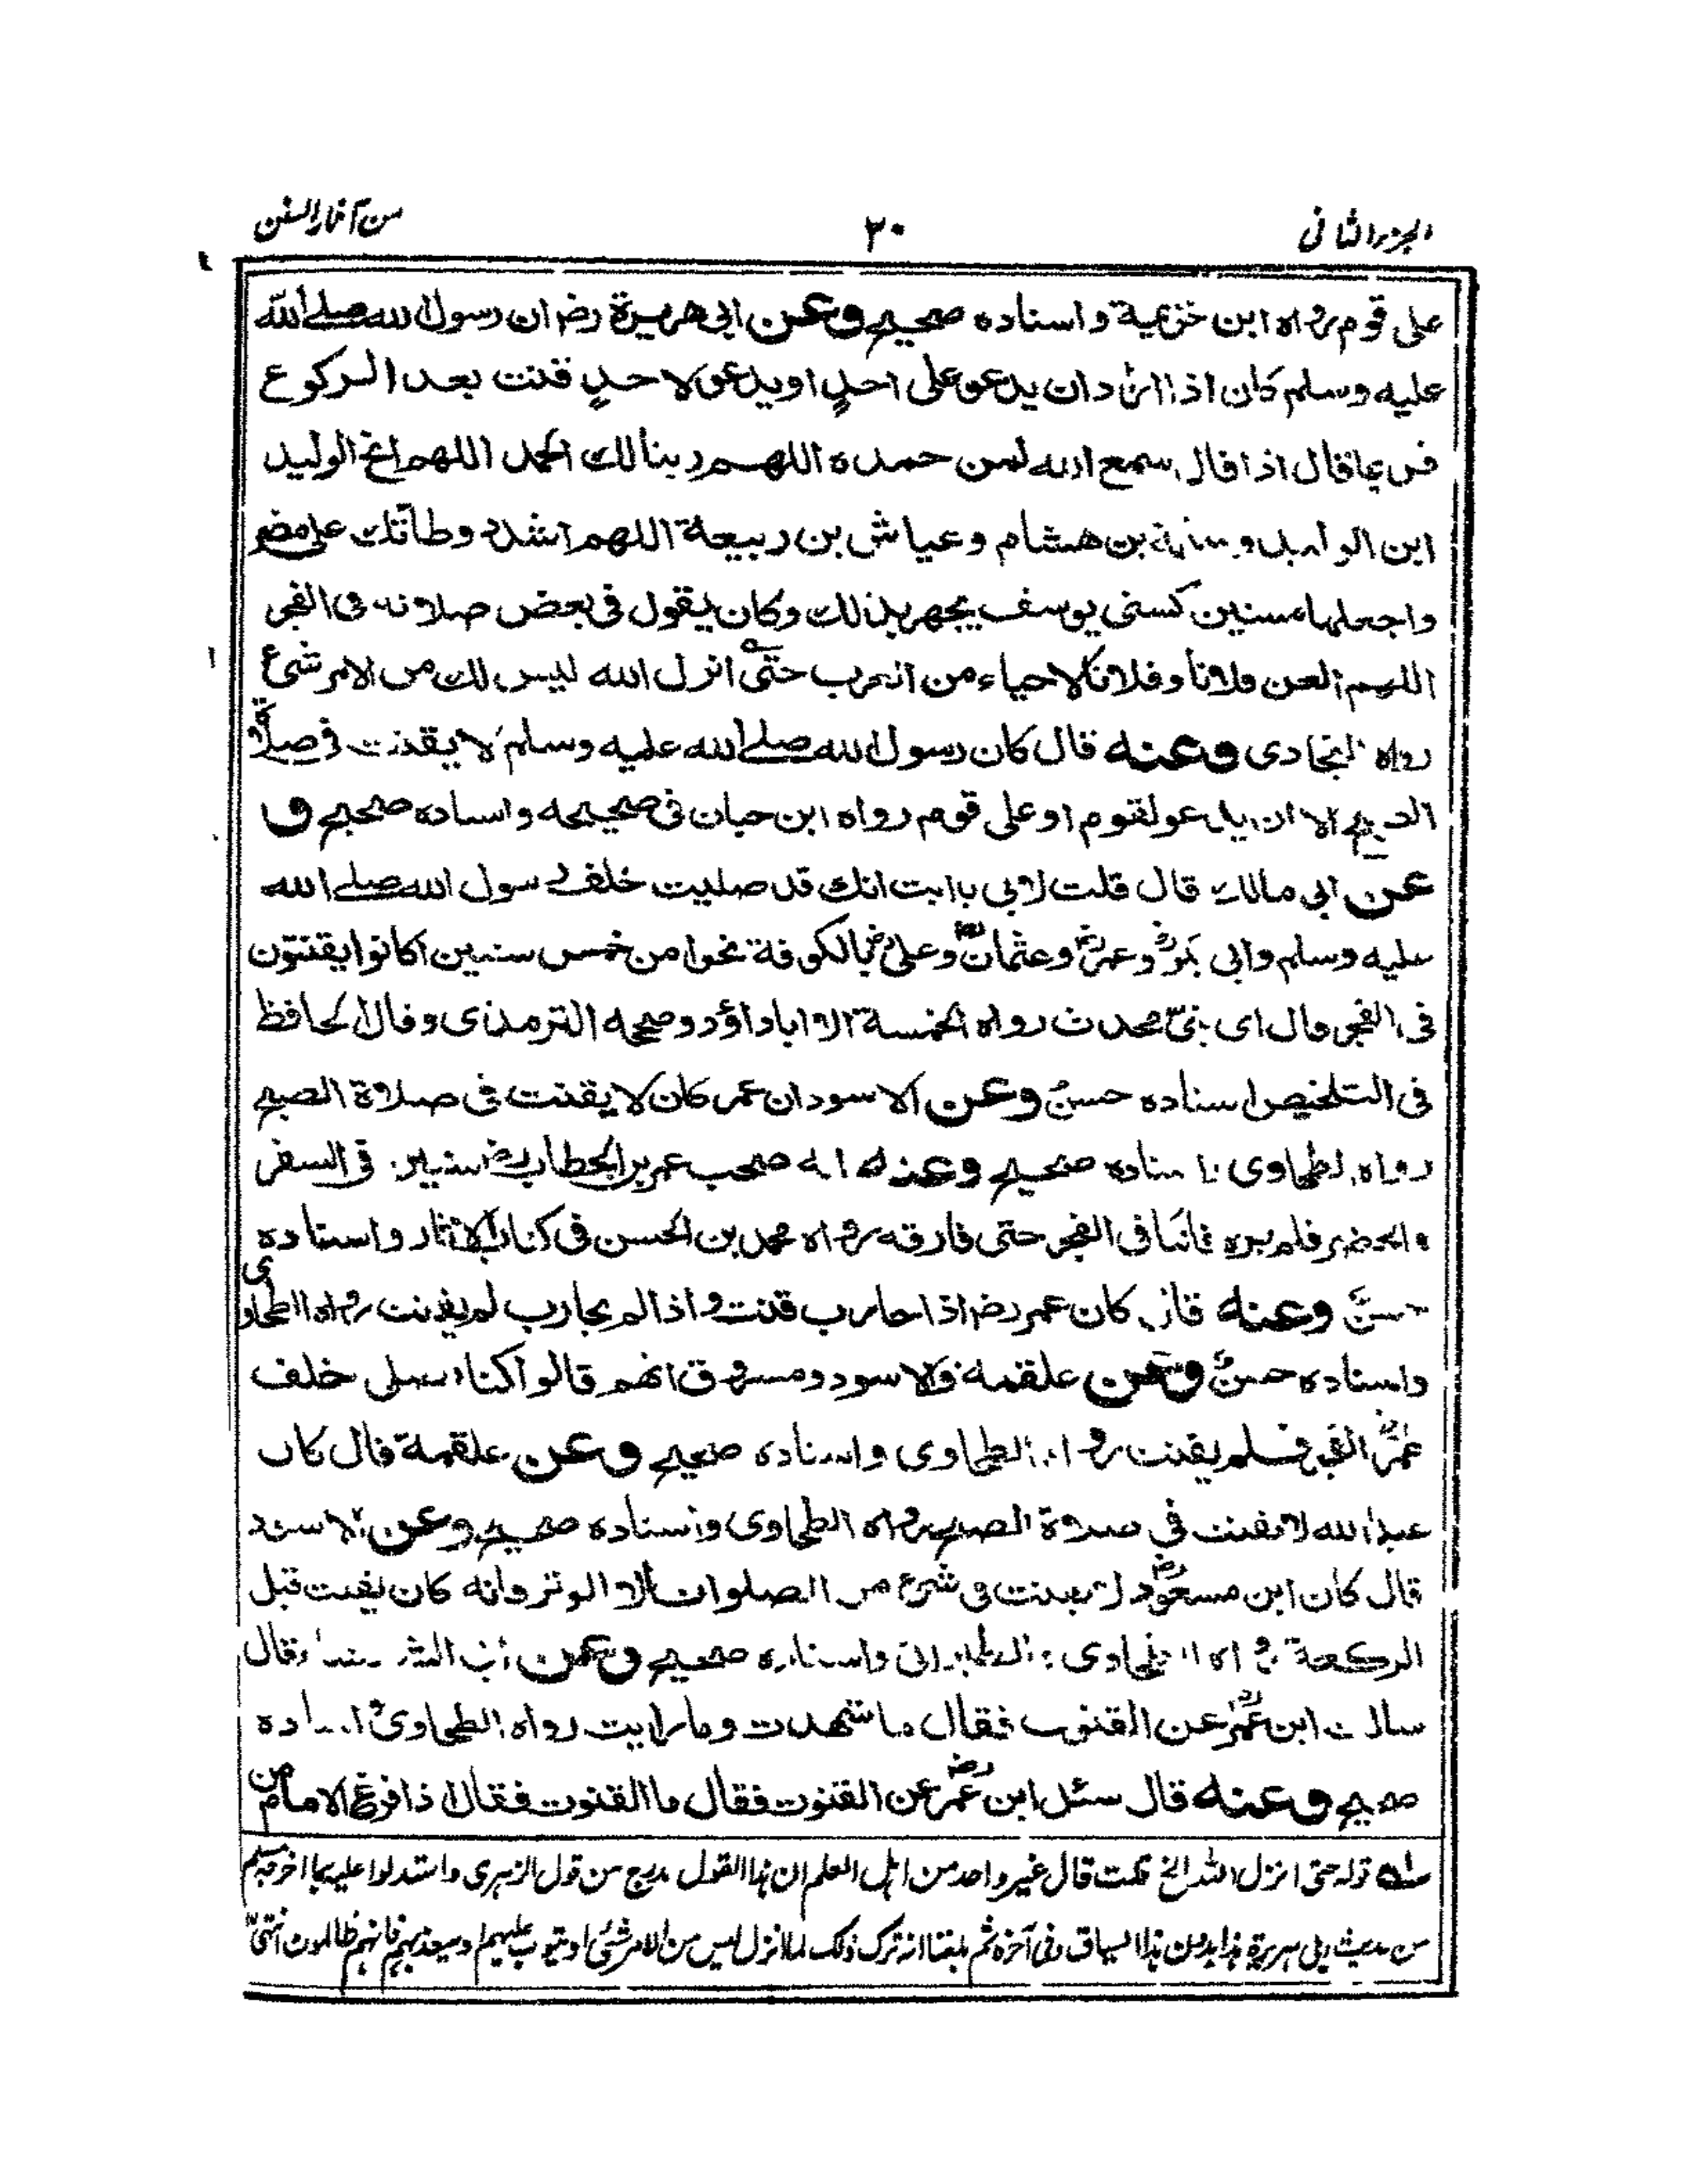 الجزء الثانی
٢٠
من آثار السنن
علی قوم رواه ابن خزیمة واسناده صحیح وعن ابی هریرة رضـ ان رسول الله صلے الله
علیه وسلم کان اذا اراد ان یدعو علی احدٍ او یدعو لاحدٍ قنت بعد الرکوع
فربما قال اذا قال سمع الله لمن حمده اللهم ربنا لك الحمد اللهم انج الولید
ابن الولید وسلمة بن هشام وعیاش بن ربیعة اللهم اشدد وطأتك علی مضر
واجعلها سنین کسنی یوسف یجهر بذلك وکان یقول فی بعض صلاته فی الفجر
اللهم العن فلانا وفلانا لاحیاء من العرب حتی انزل الله لیس لك من الامر شیء
رواه البخاری وعنه قال کان رسول الله صلے الله علیه وسلم لا یقنت فی صلاة
الصبح الا ان یدعو لقوم او علی قوم رواه ابن حبان فی صحیحه واسناده صحیح و
عن ابی مالك قال قلت لابی یا ابت انك قد صلیت خلف رسول الله صلے الله
علیه وسلم وابی بکرؓ وعمرؓ وعثمانؓ وعلیؓ بالکوفة نحوا من خمس سنین اکانوا یقنتون
فی الفجر قال ای بنیّ محدث رواه الخمسة الا اباداؤد وصححه الترمذی وقال الحافظ
فی التلخیص اسناده حسنٌ وعن الاسود ان عمر کان لا یقنت فی صلاة الصبح
رواه الطحاوی باسناده صحیح وعنه انه صحب عمر بن الخطابؓ سنین فی السفر
والحضر فلم یره قانتا فی الفجر حتی فارقه رواه محمد بن الحسن فی کتاب الاثار واسناده
حسنٌ وعنه قال کان عمر رضـ اذا حارب قنت واذا لم یحارب لم یقنت رواه الطحاوی
واسناده حسنٌ وعن علقمة والاسود ومسروق انهم قالوا کنا نصلی خلف
عمرؓ الفجر فلم یقنت رواه الطحاوی واسناده صحیح وعن علقمة قال کان
عبد الله لا یقنت فی صلاة الصبح رواه الطحاوی واسناده صحیح وعن الاسود
قال کان ابن مسعودؓ لا یقنت فی شیء من الصلوات الا الوتر وانه کان یقنت قبل
الرکعة رواه الطحاوی والطبرانی واسناده صحیح وعن ابی الشعثاء قال
سالت ابن عمرؓ عن القنوت فقال ما شهدت وما رایت رواه الطحاوی واسناده
صحیح وعنه قال سئل ابن عمرؓ عن القنوت فقال ما القنوت فقال اذا فرغ الامام من
قوله حتی انزل الله الخ قلت قال غیر واحد من اهل العلم ان هذا القول مدرج من قول الزهری واستدلوا علیه بما اخرجه مسلم
من حدیث ابی هریرة هذا بدون هذا السیاق وفی آخره ثم بلغنا انه ترک ذلک لما انزل لیس من الامر شیٔ او یتوب علیهم او یعذبهم فانهم ظالمون انتهیٰ